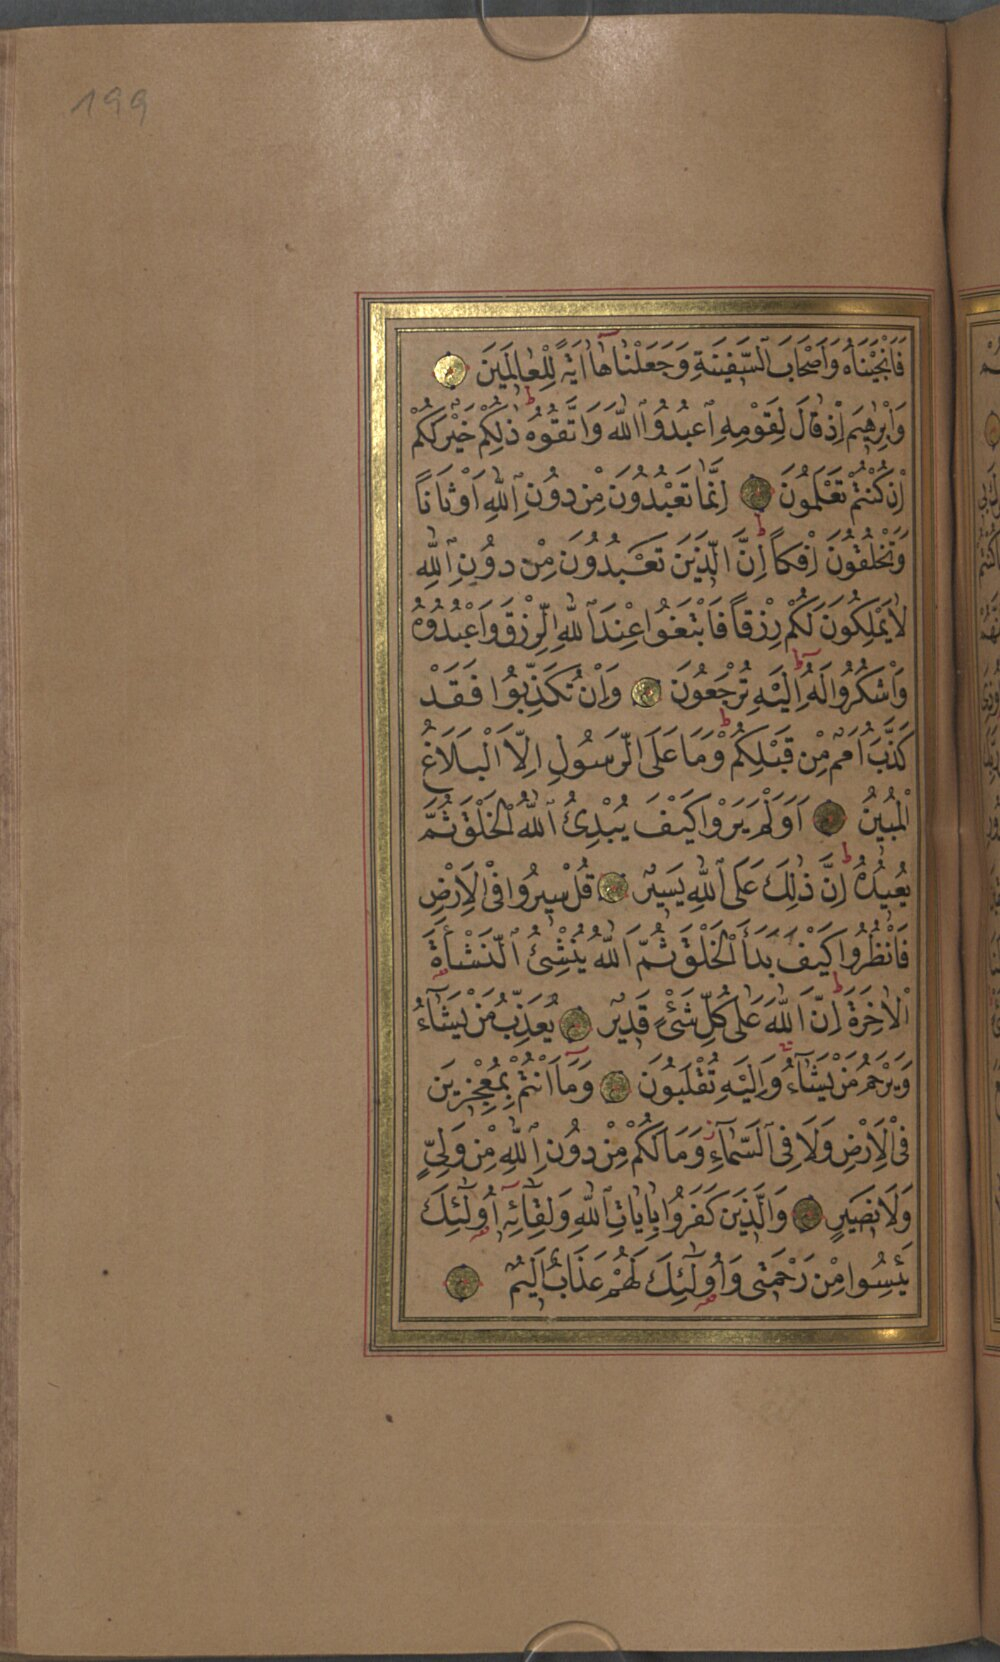 199
فَاَنْجَيْنَاهُ وَاَصْحَابَ السَّفِينَةِ وَجَعَلْنَاهَا اٰيَةً لِلْعَالَمِينَ
وَاِبْرٰهِيمَ اِذْ قَالَ لِقَوْمِهِ اعْبُدُوا اللّٰهَ وَاتَّقُوهُ ذٰلِكُمْ خَيْرٌ لَكُمْ
اِنْ كُنْتُمْ تَعْلَمُونَ اِنَّمَا تَعْبُدُونَ مِنْ دُونِ اللّٰهِ اَوْثَانًا
وَتَخْلُقُونَ اِفْكًا اِنَّ الَّذِينَ تَعْبُدُونَ مِنْ دُونِ اللّٰهِ
لَا يَمْلِكُونَ لَكُمْ رِزْقًا فَابْتَغُوا عِنْدَ اللّٰهِ الرِّزْقَ وَاعْبُدُوهُ
وَاشْكُرُوا لَهُ اِلَيْهِ تُرْجَعُونَ وَاِنْ تُكَذِّبُوا فَقَدْ
كَذَّبَ اُمَمٌ مِنْ قَبْلِكُمْ وَمَا عَلَى الرَّسُولِ اِلَّا الْبَلَاغُ
الْمُبِينُ اَوَلَمْ يَرَوْا كَيْفَ يُبْدِئُ اللّٰهُ الْخَلْقَ ثُمَّ
يُعِيدُهُ اِنَّ ذٰلِكَ عَلَى اللّٰهِ يَسِيرٌ قُلْ سِيرُوا فِى الْاَرْضِ
فَانْظُرُوا كَيْفَ بَدَاَ الْخَلْقَ ثُمَّ اللّٰهُ يُنْشِئُ النَّشْاَةَ
الْاٰخِرَةَ اِنَّ اللّٰهَ عَلٰى كُلِّ شَىْءٍ قَدِيرٌ يُعَذِّبُ مَنْ يَشَاءُ
وَيَرْحَمُ مَنْ يَشَاءُ وَاِلَيْهِ تُقْلَبُونَ وَمَا اَنْتُمْ بِمُعْجِزِينَ
فِى الْاَرْضِ وَلَا فِى السَّمَاءِ وَمَا لَكُمْ مِنْ دُونِ اللّٰهِ مِنْ وَلِىٍّ
وَلَا نَصِيرٍ وَالَّذِينَ كَفَرُوا بِاٰيَاتِ اللّٰهِ وَلِقَائِهِ اُولٰئِكَ
يَئِسُوا مِنْ رَحْمَتِى وَاُولٰئِكَ لَهُمْ عَذَابٌ اَلِيمٌ